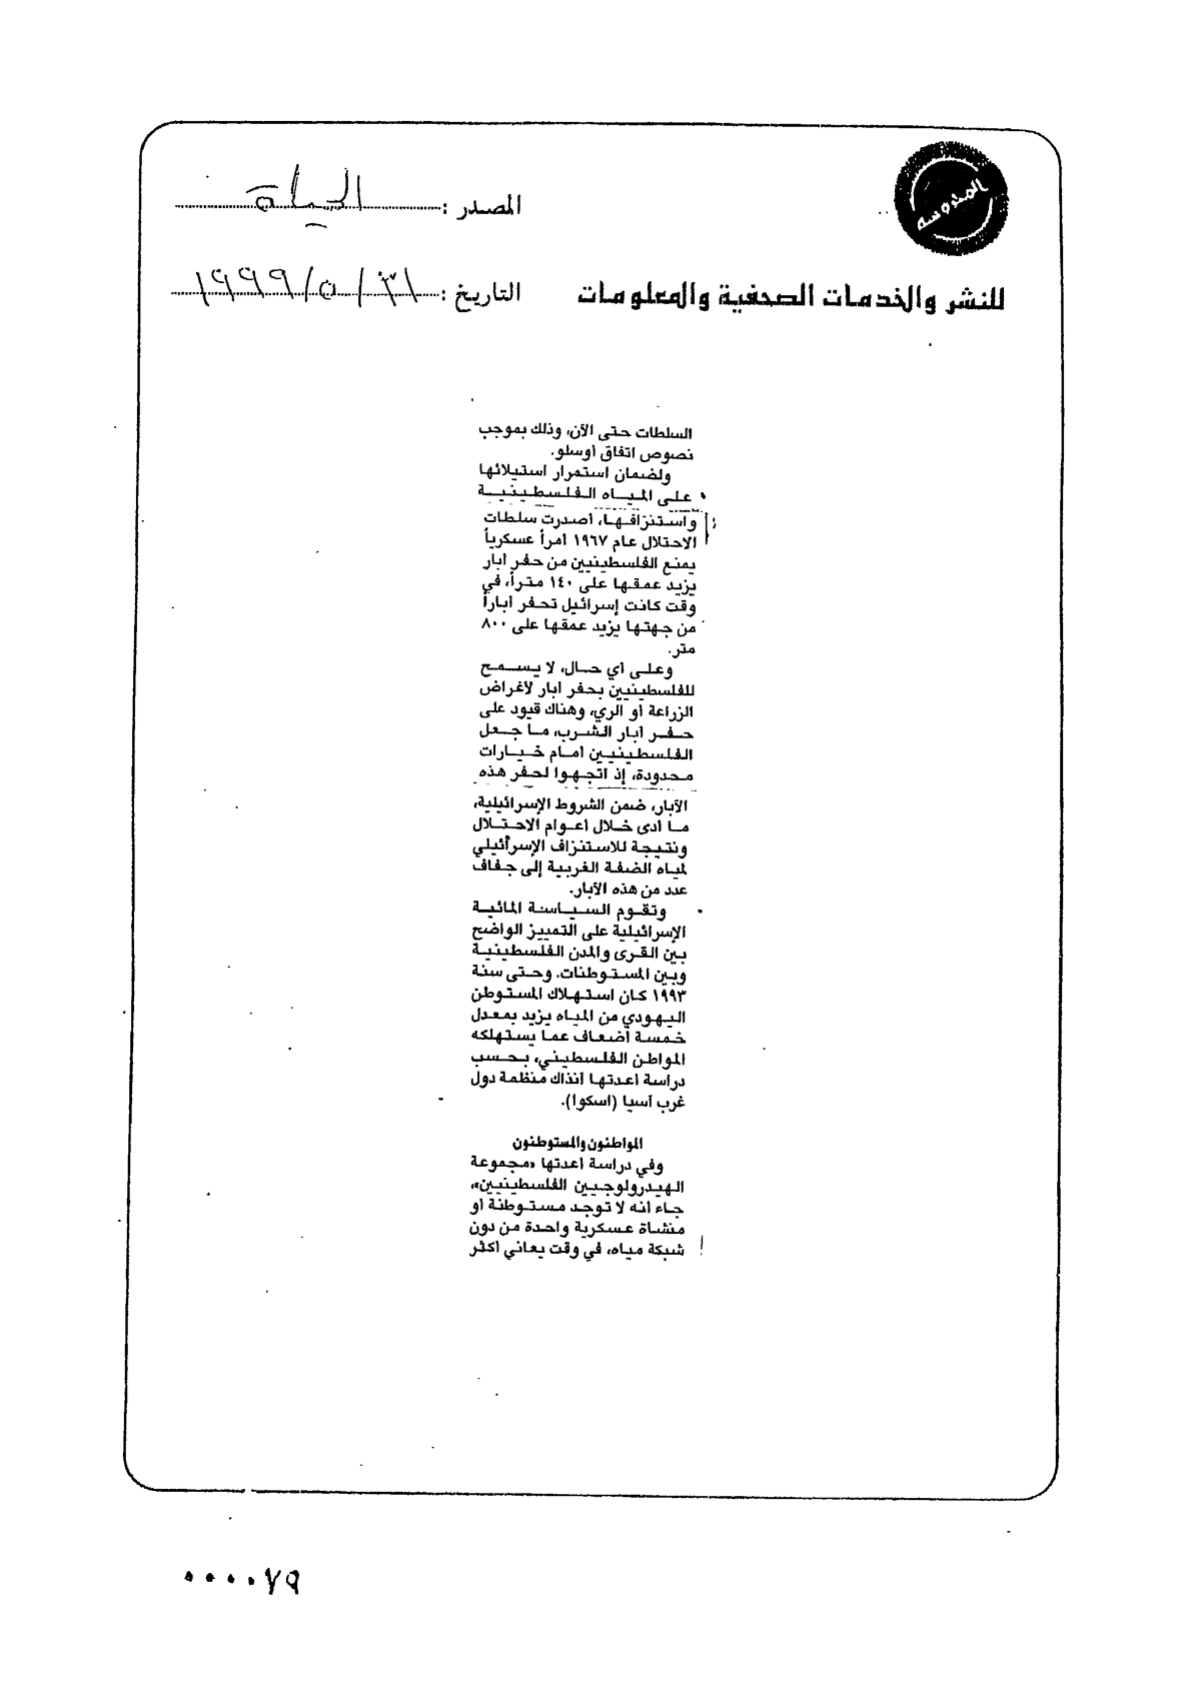 المصدر : الحياة
المدوسة
للنشر والخدمات الصحفية والمعلومات
التاريخ : ٣١ / ٥ / ١٩٩٩
السلطات حتى الآن، وذلك بموجب
نصوص اتفاق أوسلو.
ولضمان استمرار استيلائها
على المياه الفلسطينية
واستنزافها، أصدرت سلطات
الاحتلال عام ١٩٦٧ امرأ عسكرياً
يمنع الفلسطينيين من حفر ابار
يزيد عمقها على ١٤٠ متراً، في
وقت كانت إسرائيل تحفر اباراً
من جهتها يزيد عمقها على ٨٠٠
متر.
وعلى أي حال، لا يسمح
للفلسطينيين بحفر ابار لأغراض
الزراعة أو الري، وهناك قيود على
حفر ابار الشرب، ما جعل
الفلسطينيين امام خيارات
محدودة، إذ اتجهوا لحفر هذه
الآبار، ضمن الشروط الإسرائيلية،
ما أدى خلال اعوام الاحتلال
ونتيجة للاستنزاف الإسرائيلي
لمياه الضفة الغربية إلى جفاف
عدد من هذه الآبار.
وتقوم السياسة المائية
الإسرائيلية على التمييز الواضح
بين القرى والمدن الفلسطينية
وبين المستوطنات. وحتى سنة
١٩٩٣ كان استهلاك المستوطن
اليهودي من المياه يزيد بمعدل
خمسة أضعاف عما يستهلكه
المواطن الفلسطيني، بحسب
دراسة اعدتها انذاك منظمة دول
غرب آسيا (اسكوا).
المواطنون والمستوطنون
وفي دراسة اعدتها «مجموعة
الهيدرولوجيين الفلسطينيين»،
جاء انه لا توجد مستوطنة أو
منشاة عسكرية واحدة من دون
شبكة مياه، في وقت يعاني اكثر
٠٠٠٠٧٩